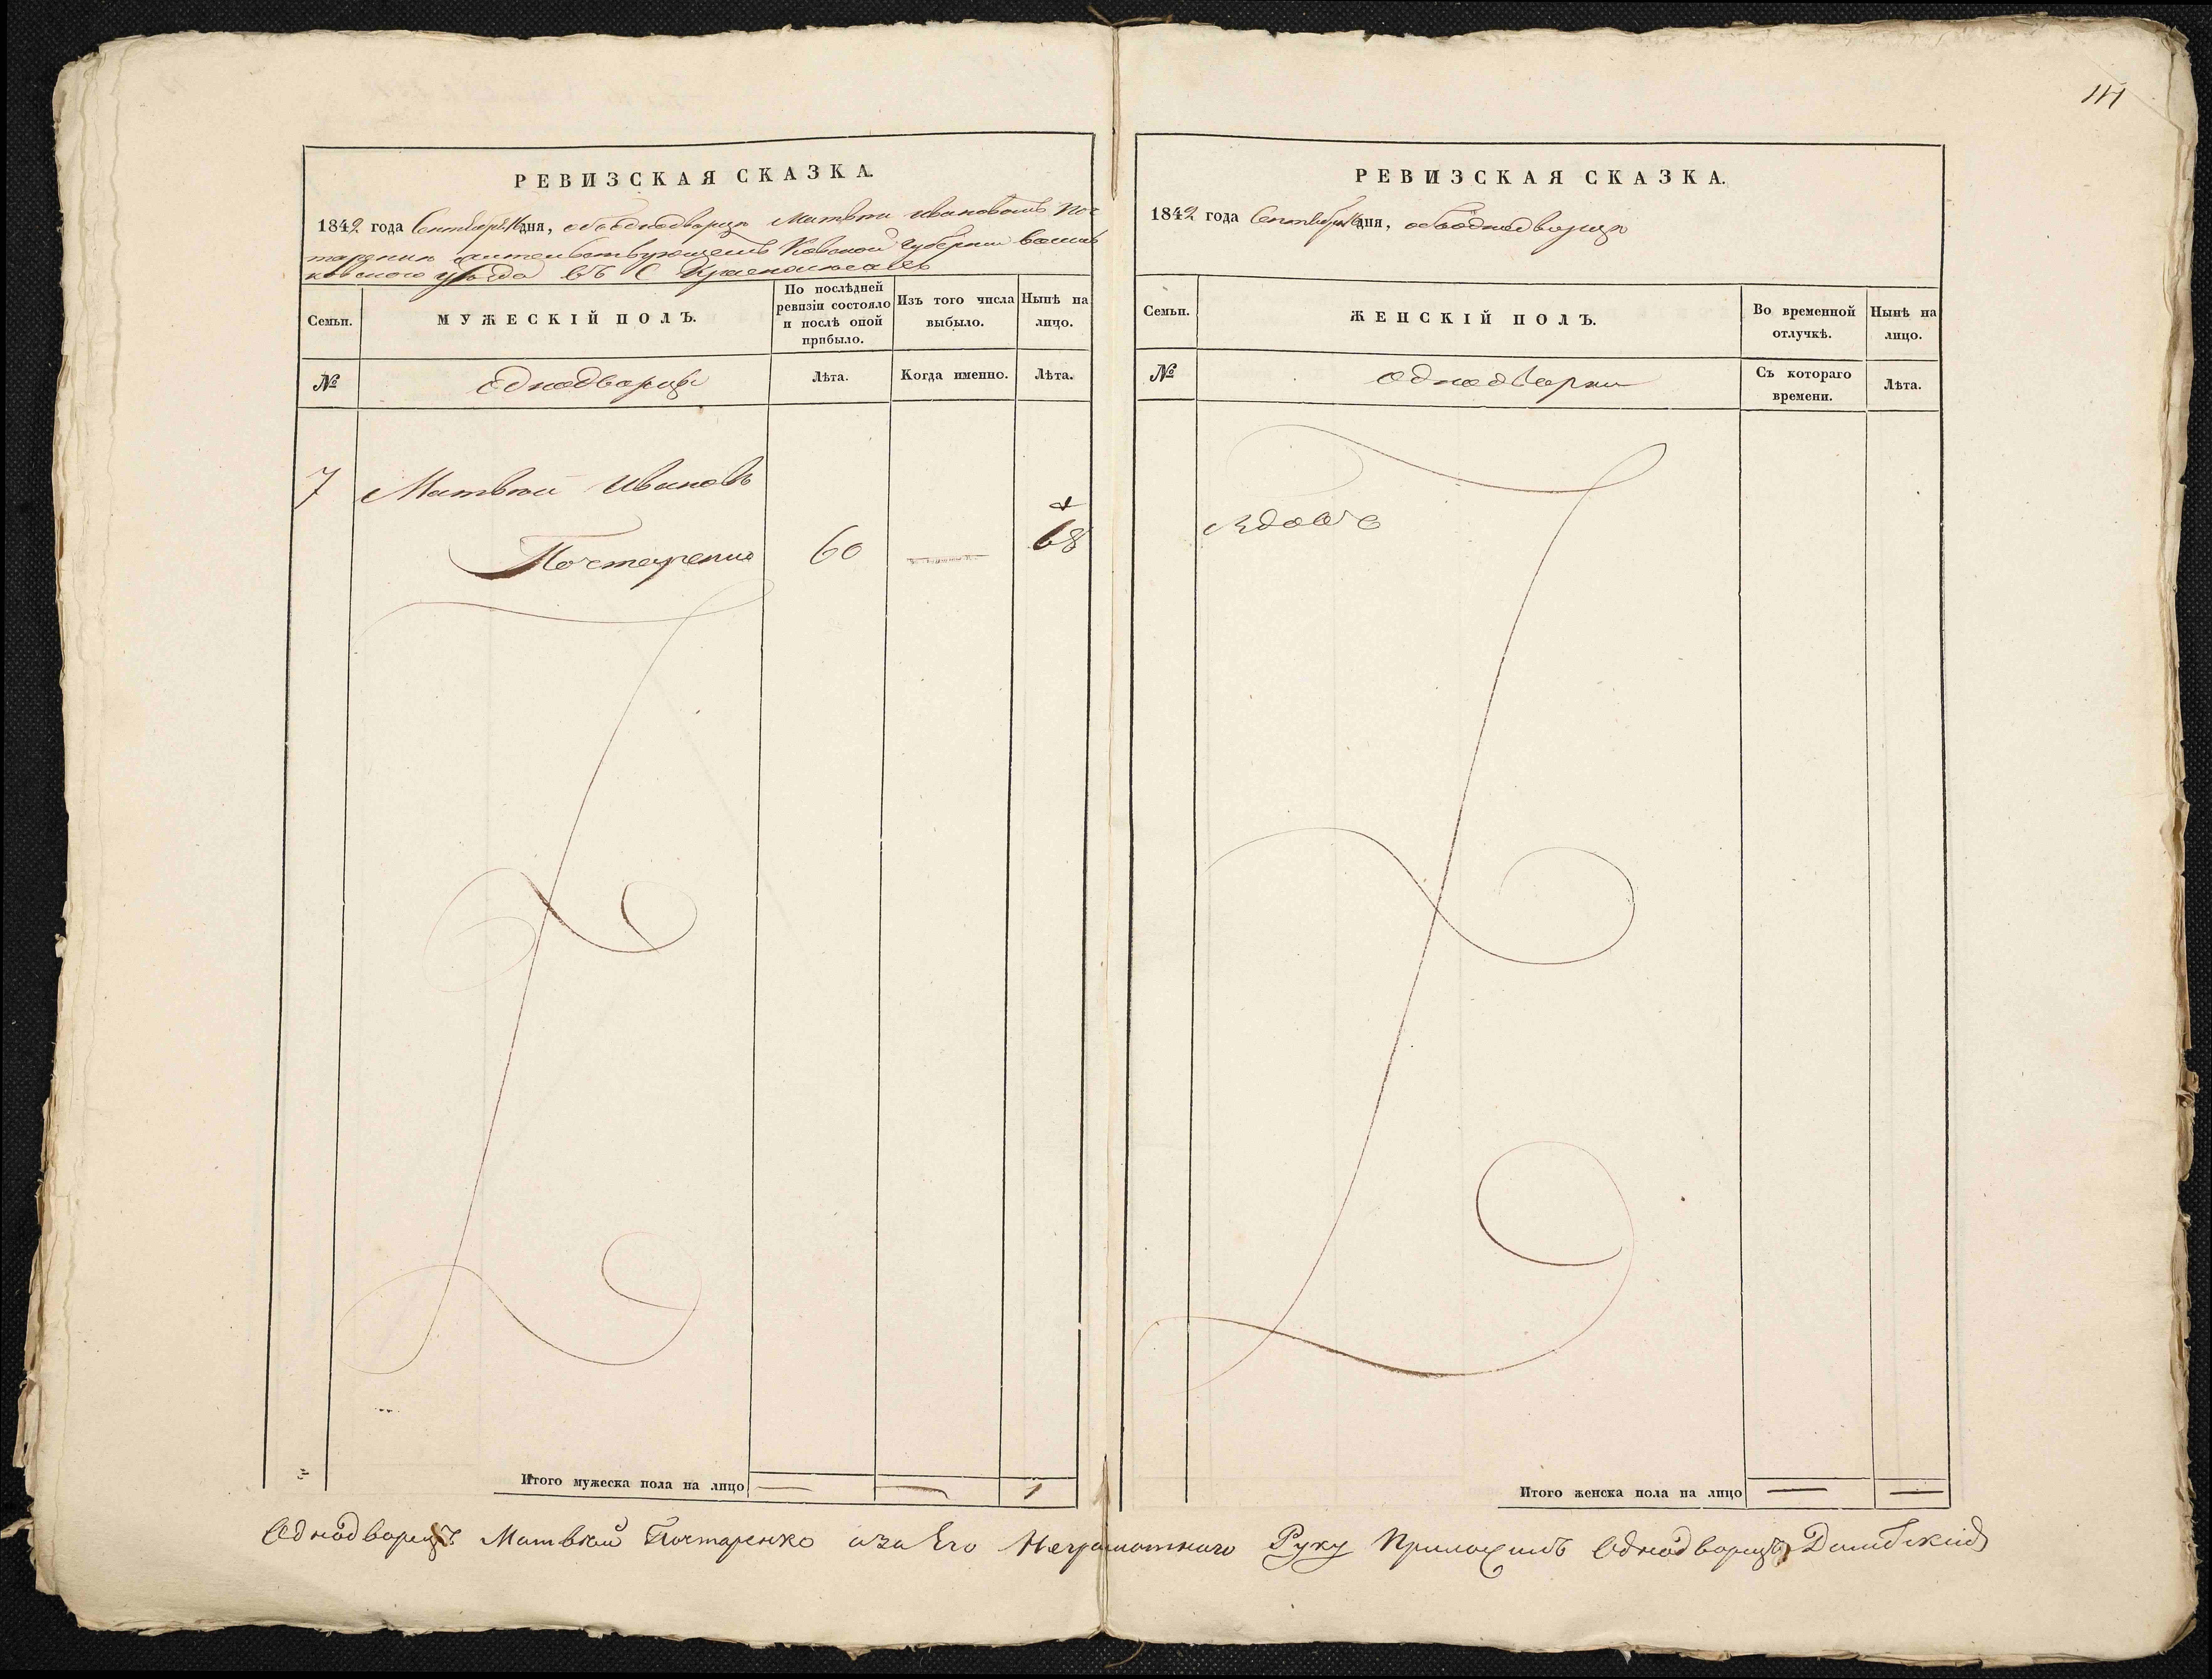 111
РЕВИЗСКАЯ СКАЗКА.
1842 года Сентября 16 дня, объ однодворце Матвѣи Ивановомъ Пос
таренки жительствующемъ Кіевской губерніи Василь
ковскаго уѣзда въ С
Семьи.
МУЖЕСКІЙ ПОЛЪ.
По послѣдней ревизіи состояло и послѣ оной прибыло.
Изъ того числа выбыло.
Нынѣ на лицо.
№
однодворцы
Лѣта.
Когда именно.
Лѣта.
7
Матвѣй Ивановъ
Постаренко
60
68
Итого мужеска пола на лицо
1
РЕВИЗСКАЯ СКАЗКА.
1842 года Сентября 16 дня, объ однодворце
Семьи.
ЖЕНСКІЙ ПОЛЪ.
Во временной отлучкѣ.
Нынѣ на лицо.
№
однодворки
Съ котораго времени.
Лѣта.
Итого женска пола на лицо
Однодворецъ Матвѣй Постаренко а за Его Неграмотнаго Руку Приложилъ Однодворецъ